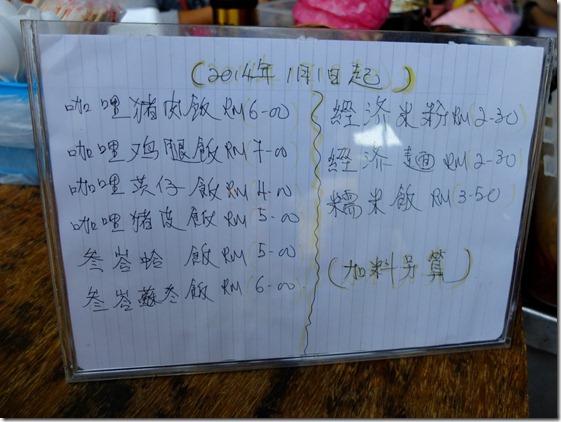 (2014年1月1日起)
咖哩猪肉飯 RM 6-00
咖哩鸡腿飯 RM 7-00
咖哩荚仔飯 RM 4-00
咖哩猪皮飯 RM 5-00
叁峇蛤 飯 RM 5-00
叁峇蘇叁飯 RM 6-00
經济米粉 RM 2-30
經济麵 RM 2-30
糯米飯 RM 3-50
(加料另算)